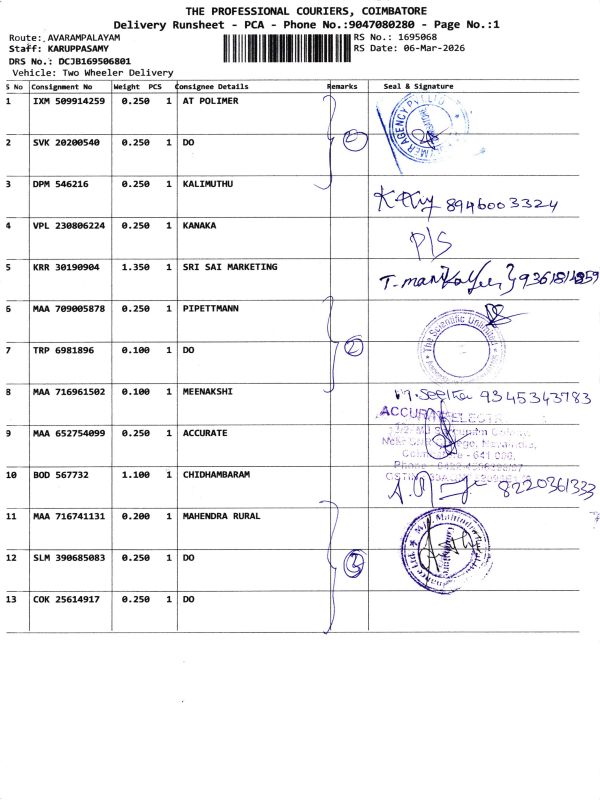 THE PROFESSIONAL COURIERS, COIMBATORE
Delivery Runsheet - PCA - Phone No.:9047080280 - Page No.:1
Route: AVARAMPALAYAM RS No.: 1695068
Staff: KARUPPASAMY RS Date: 06-Mar-2026
DRS No.: DCJB169506801
Vehicle: Two Wheeler Delivery
S No Consignment No Weight PCS Consignee Details Remarks Seal & Signature
1 IXM 509914259 0.250 1 AT POLIMER
2 SVK 20200540 0.250 1 DO
3 DPM 546216 0.250 1 KALIMUTHU 8946003324
4 VPL 230806224 0.250 1 KANAKA P/S
5 KRR 30190904 1.350 1 SRI SAI MARKETING
6 MAA 709005878 0.250 1 PIPETTMANN
The Scientific
7 TRP 6981896 0.100 1 DO 2
8 MAA 716961502 0.100 1 MEENAKSHI 9345343783
9 MAA 652754099 0.250 1 ACCURATE
10 BOD 567732 1.100 1 CHIDHAMBARAM 8220361333
11 MAA 716741131 0.200 1 MAHENDRA RURAL
12 SLM 390685083 0.250 1 DO 3
13 COK 25614917 0.250 1 DO